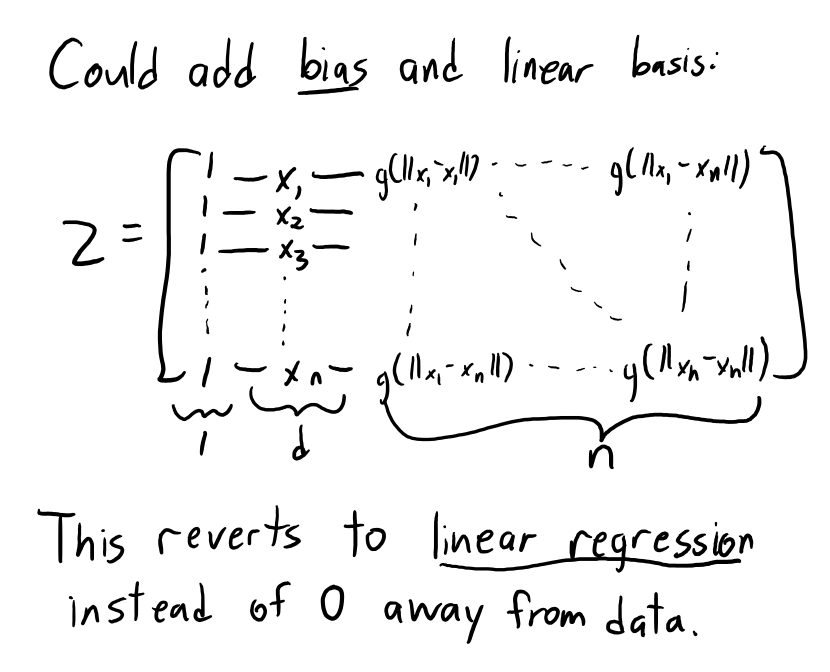 Could add bias and linear basis:
1 — x₁ — g(||x₁-x₁||) ------ g(||x₁-xn||)
Z = 1 — x₂ —
1 — x₃ —
1 — xn — g(||x₁-xn||) ------ g(||xn-xn||)
1 d n
This reverts to linear regression
instead of 0 away from data.